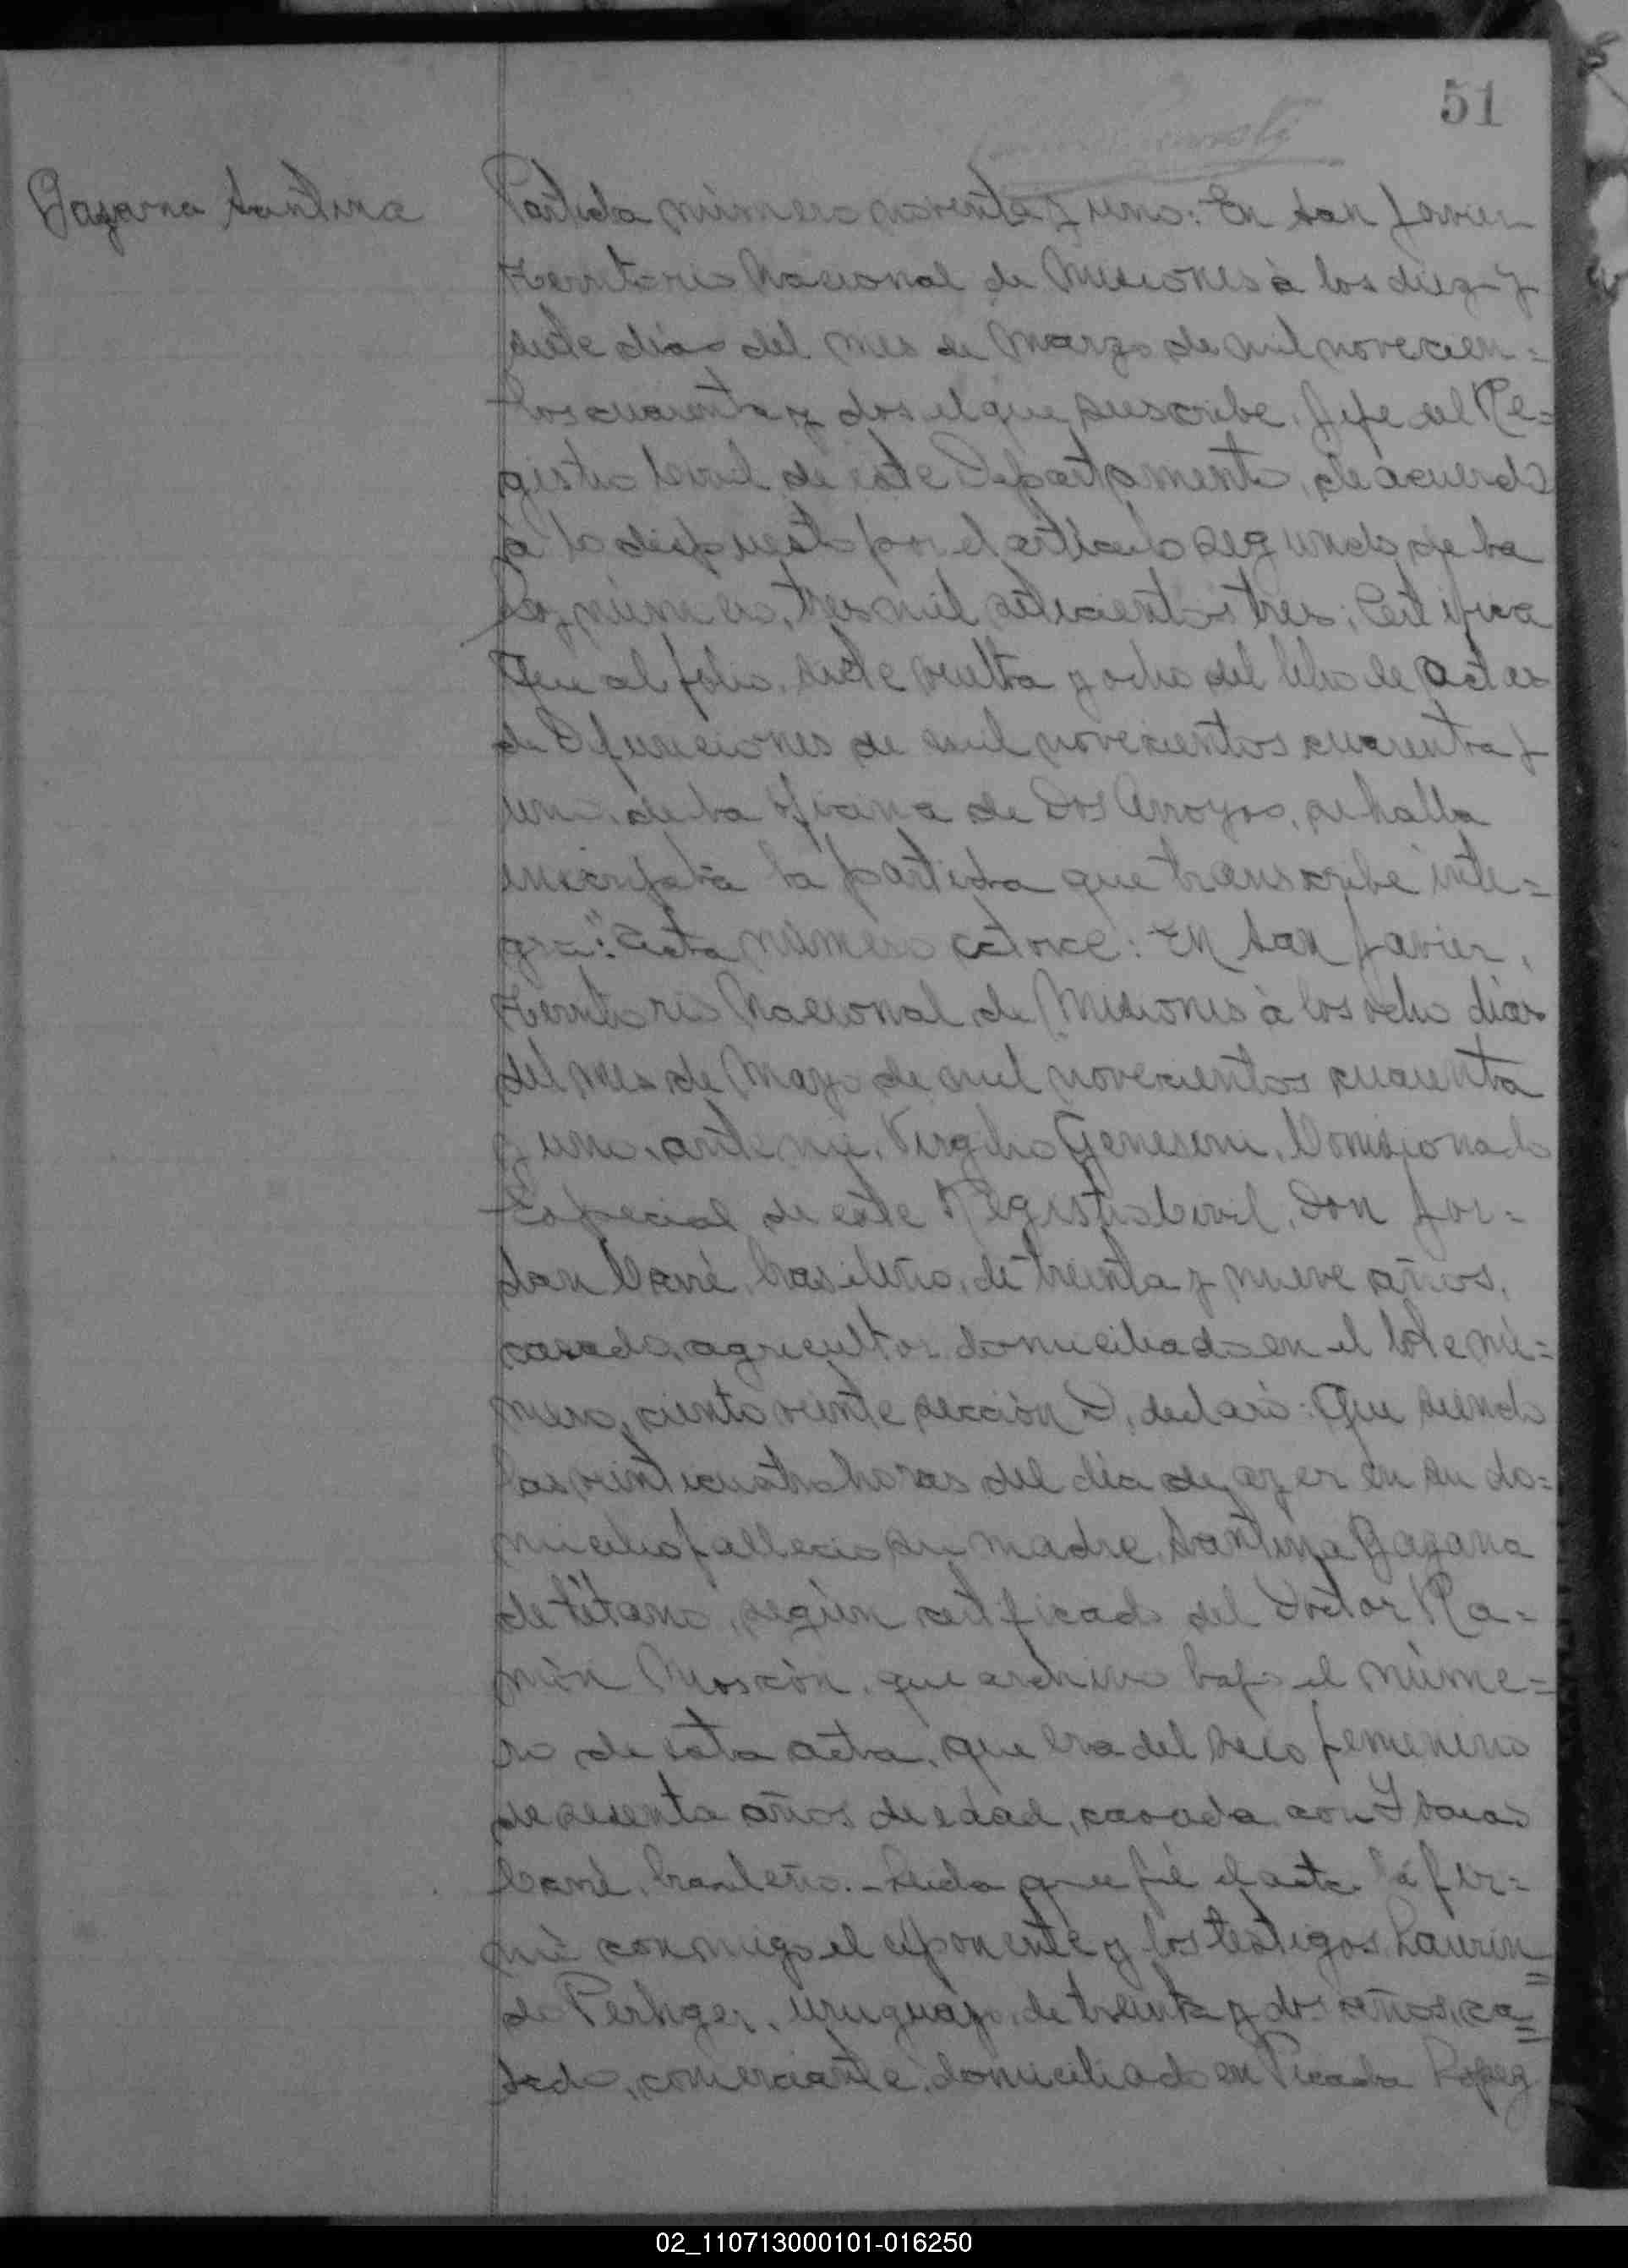 51
Gazana Santina
Partida número noventa y uno: En San Javier
Territorio Nacional de Misiones à los diez y
siete dias del mes de Marzo de mil novecien=
tos cuarenta y dos el que suscribe, Jefe del Re=
gistro Civil de este Departamento, de acuerdo
à lo dispuesto por el artículo segundo de la
Ley número, tres mil setecientos tres; Certifica
Que al folio, siete vuelta y ocho del libro de actas
de Defunciones de mil novecientos cuarenta y
uno, de la oficina de Dos Arroyos, se halla
inscripta la partida que transcribe inte=
gra: "Acta número catorce: En San Javier,
Territorio Nacional de Misiones à los ocho dias
del mes de Mayo de mil novecientos cuarenta
y uno, ante mi, Virgilio Genesini, Comisionado
Especial de este Registro Civil, Don Jor=
dan Carré, brasileño, de treinta y nueve años,
casado, agricultor domiciliado en el lote nú=
mero, ciento veinte sección D, declaró: Que siendo
las veinticuatro horas del día de ayer en su do=
micilio falleció su madre, Santina Gazana
de tétano, según certificado del Doctor Ra=
món que archivo bajo el núme=
ro de esta acta, que era del sexo femenino
de sesenta años de edad, casada con Isaias
Carré, brasileño.- Leida que fué el acta la fir=
mó conmigo el exponente y los testigos, Laurin=
do Perhger, uruguayo, de treinta y dos años, ca=
sado, comerciante, domiciliado en Picada Lopez
02_110713000101-016250